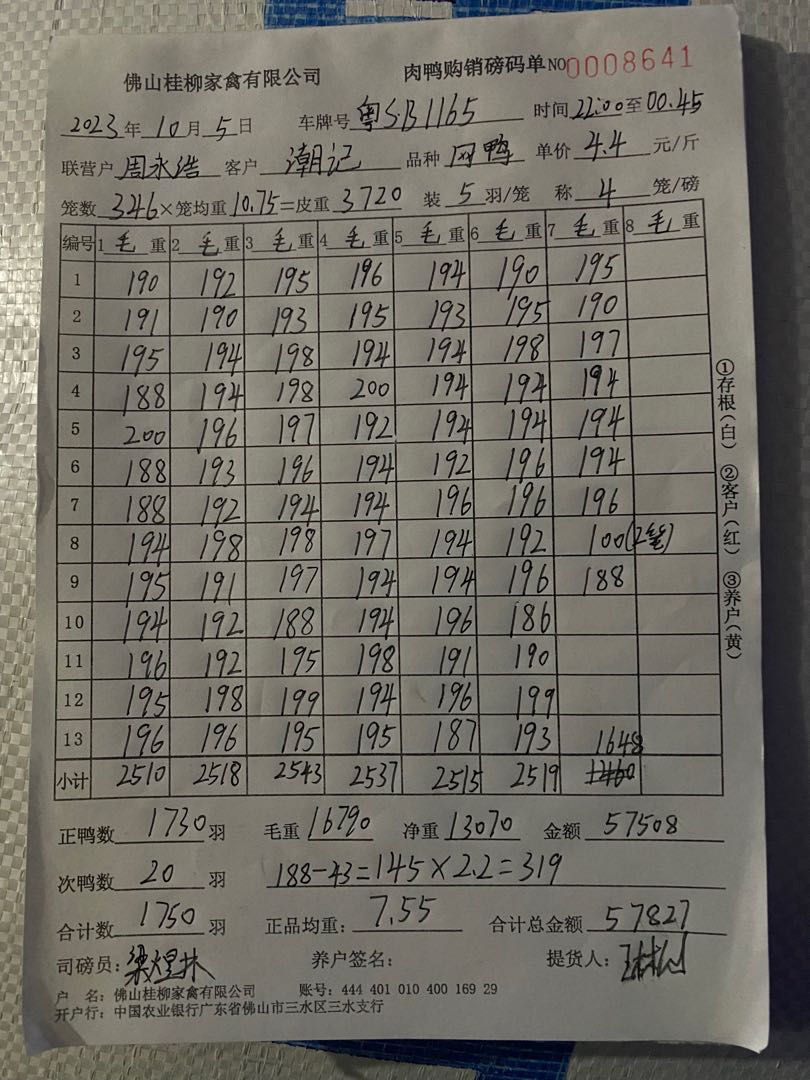 佛山桂柳家禽有限公司 肉鸭购销磅码单 NO0008641
2023年10月5日 车牌号 粤SB1165 时间 22:00至00.45
联营户 周永浩 客户 潮记 品种 网鸭 单价 4.4 元/斤
笼数 346×笼均重 10.75=皮重 3720 装 5 羽/笼 称 4 笼/磅
编号 1 毛 重 2 毛 重 3 毛 重 4 毛 重 5 毛 重 6 毛 重 7 毛 重 8 毛 重
1 190 192 195 196 194 190 195
2 191 190 193 195 193 195 190
3 195 194 198 194 194 198 197
4 188 194 198 200 194 194 194
5 200 196 197 192 194 194 194
6 188 193 196 194 192 196 194
7 188 192 194 194 196 196 196
8 194 198 198 197 194 192 100(2笼)
9 195 191 197 194 194 196 188
10 194 192 188 194 196 186
11 196 192 195 198 191 190
12 195 198 199 194 196 199
13 196 196 195 195 187 193 1648
小计 2510 2518 2543 2537 2515 2519
①存根(白) ②客户(红) ③养户(黄)
正鸭数 1730 羽 毛重 16790 净重 13070 金额 57508
次鸭数 20 羽 188-43=145×2.2=319
合计数 1750 羽 正品均重: 7.55 合计总金额 57827
司磅员: 梁煜林 养户签名: 提货人:
户 名: 佛山桂柳家禽有限公司 账号: 444 401 010 400 169 29
开户行: 中国农业银行广东省佛山市三水区三水支行